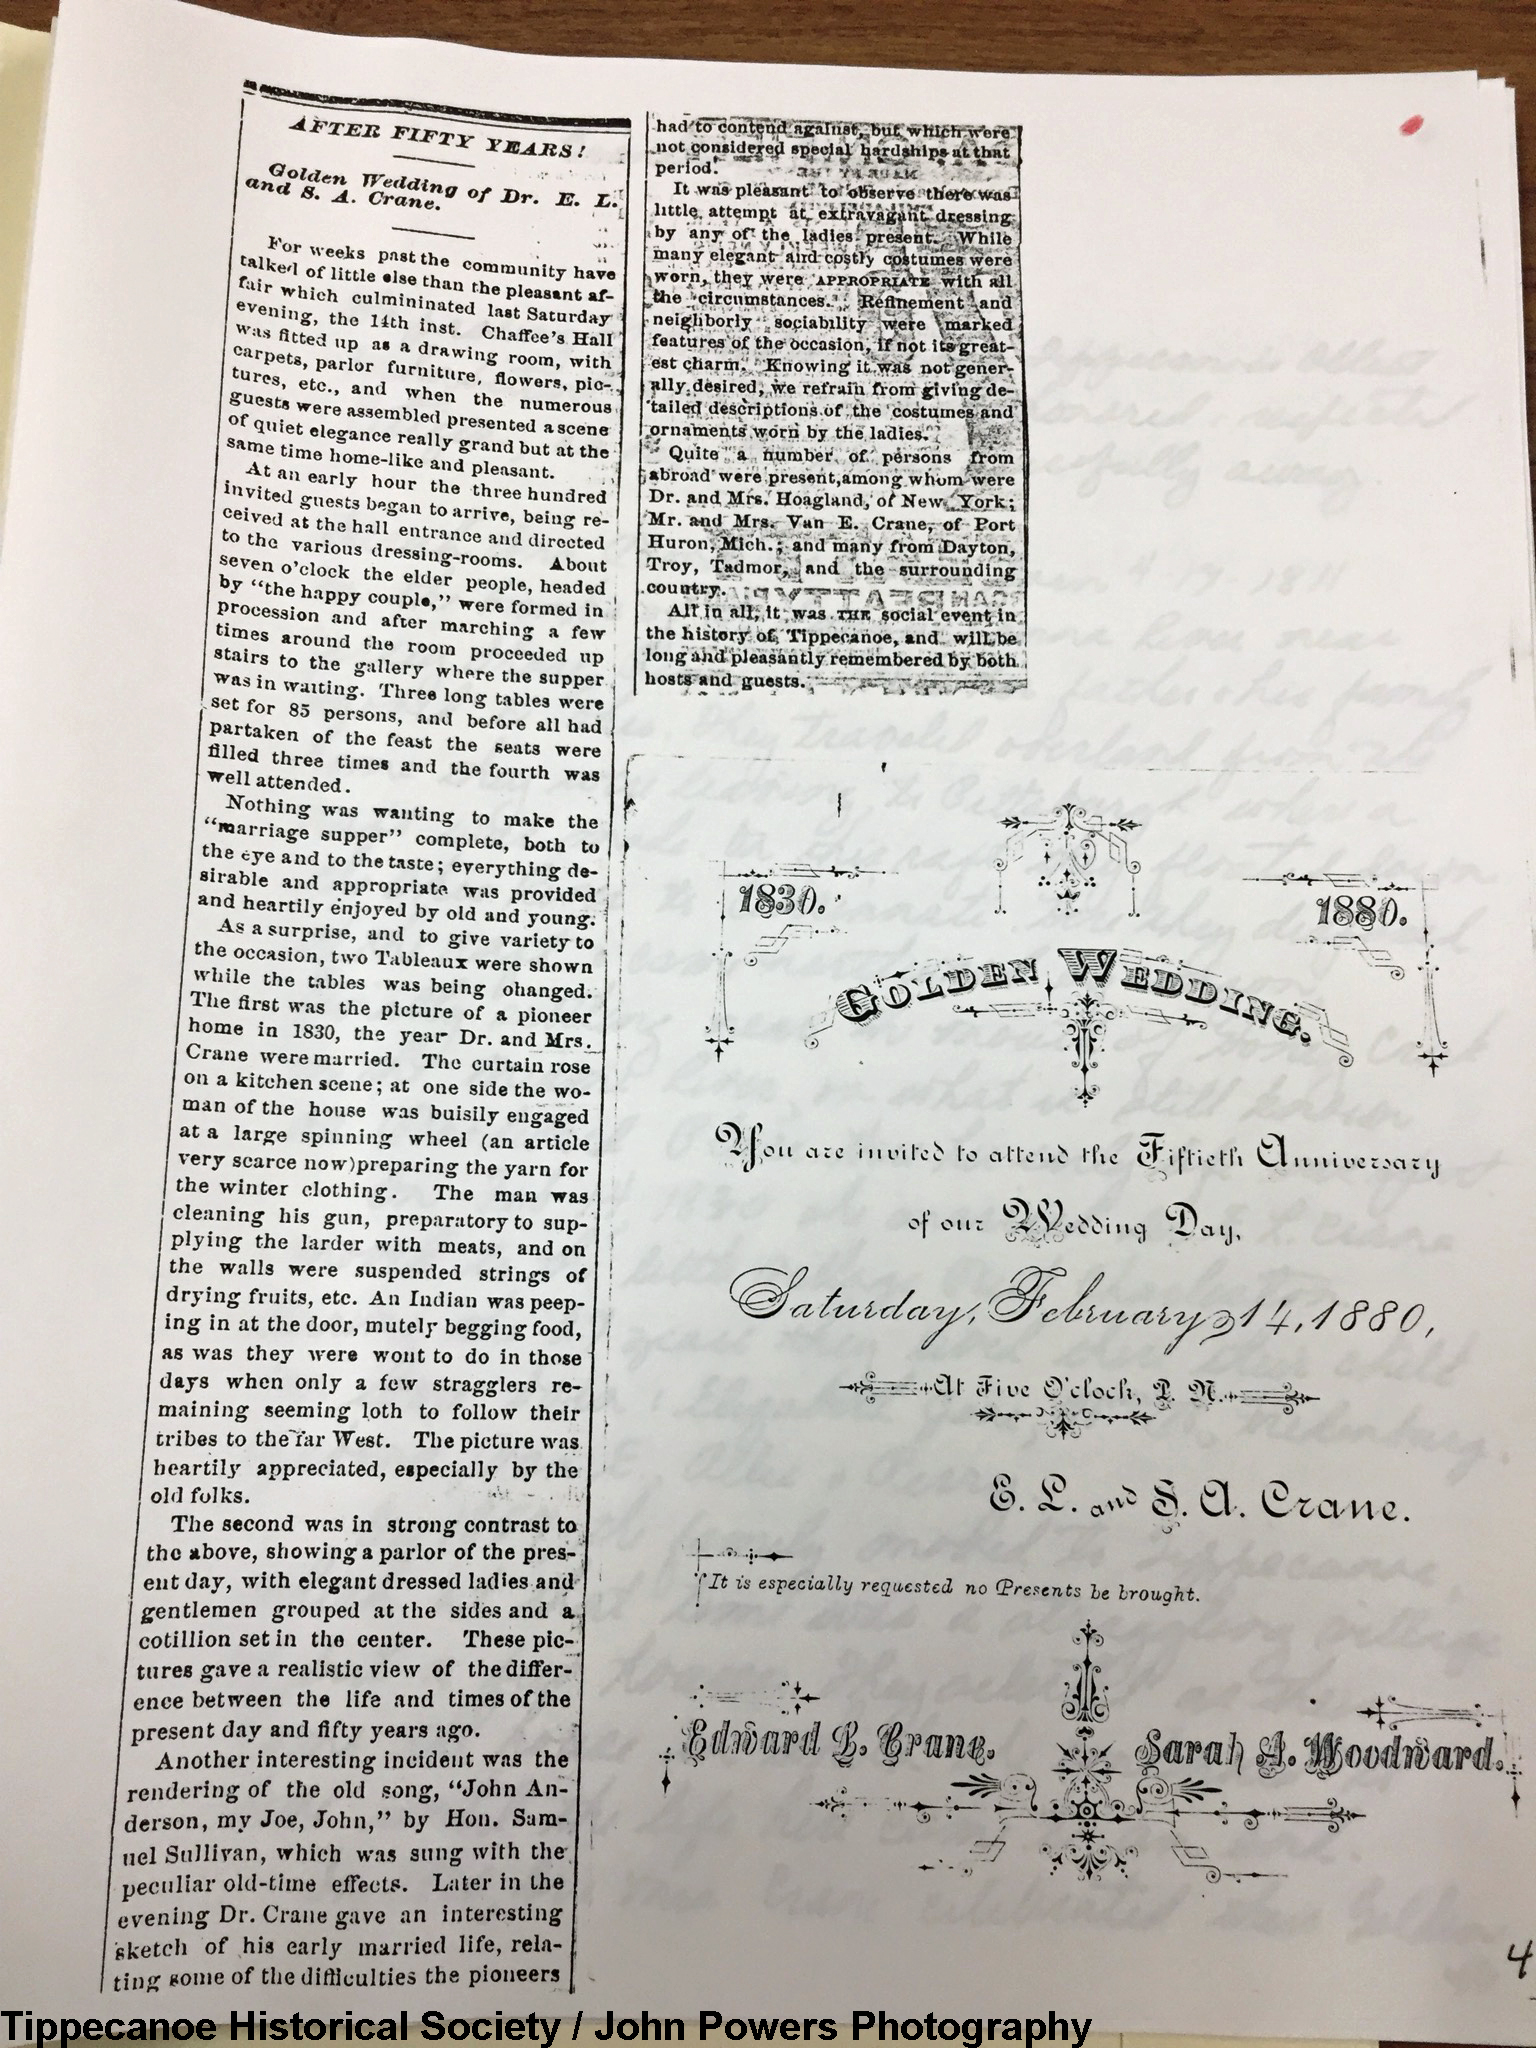 AFTER FIFTY YEARS!
Golden Wedding of Dr. E. L.
and S. A. Crane.
For weeks past the community have
talked of little else than the pleasant af-
fair which culmininated last Saturday
evening, the 14th inst. Chaffee's Hall
was fitted up as a drawing room, with
carpets, parlor furniture, flowers, pic-
tures, etc., and when the numerous
guests were assembled presented a scene
of quiet elegance really grand but at the
same time home-like and pleasant.
At an early hour the three hundred
invited guests began to arrive, being re-
ceived at the hall entrance and directed
to the various dressing-rooms. About
seven o'clock the elder people, headed
by "the happy couple," were formed in
procession and after marching a few
times around the room proceeded up
stairs to the gallery where the supper
was in waiting. Three long tables were
set for 85 persons, and before all had
partaken of the feast the seats were
filled three times and the fourth was
well attended.
Nothing was wanting to make the
"marriage supper" complete, both to
the eye and to the taste; everything de-
sirable and appropriate was provided
and heartily enjoyed by old and young.
As a surprise, and to give variety to
the occasion, two Tableaux were shown
while the tables was being ohanged.
The first was the picture of a pioneer
home in 1830, the year Dr. and Mrs.
Crane were married. The curtain rose
on a kitchen scene; at one side the wo-
man of the house was buisily engaged
at a large spinning wheel (an article
very scarce now) preparing the yarn for
the winter clothing. The man was
cleaning his gun, preparatory to sup-
plying the larder with meats, and on
the walls were suspended strings of
drying fruits, etc. An Indian was peep-
ing in at the door, mutely begging food,
as was they were wont to do in those
days when only a few stragglers re-
maining seeming loth to follow their
tribes to the far West. The picture was
heartily appreciated, especially by the
old folks.
The second was in strong contrast to
the above, showing a parlor of the pres-
ent day, with elegant dressed ladies and
gentlemen grouped at the sides and a
cotillion set in the center. These pic-
tures gave a realistic view of the differ-
ence between the life and times of the
present day and fifty years ago.
Another interesting incident was the
rendering of the old song, "John An-
derson, my Joe, John," by Hon. Sam-
uel Sullivan, which was sung with the
peculiar old-time effects. Later in the
evening Dr. Crane gave an interesting
sketch of his early married life, rela-
ting some of the difficulties the pioneers
had to contend against, but which were
not considered special hardships at that
period.
It was pleasant to observe there was
little attempt at extravagant dressing
by any of the ladies present. While
many elegant and costly costumes were
worn, they were APPROPRIATE with all
the circumstances. Refinement and
neighborly sociability were marked
features of the occasion, if not its great-
est charm. Knowing it was not gener-
ally desired, we refrain from giving de-
tailed descriptions of the costumes and
ornaments worn by the ladies.
Quite a number of persons from
abroad were present, among whom were
Dr. and Mrs. Hoagland, of New York;
Mr. and Mrs. Van E. Crane, of Port
Huron, Mich.; and many from Dayton,
Troy, Tadmor, and the surrounding
country.
All in all, it was THE social event in
the history of Tippecanoe, and will be
long and pleasantly remembered by both
hosts and guests.
1830. 1880.
GOLDEN WEDDING.
You are invited to attend the Fiftieth Anniversary
of our Wedding Day,
Saturday, February 14, 1880,
At Five O'clock, P. M.
E. L. and S. A. Crane.
It is especially requested no Presents be brought.
Edward L. Crane. Sarah A. Woodward.
4
Tippecanoe Historical Society / John Powers Photography